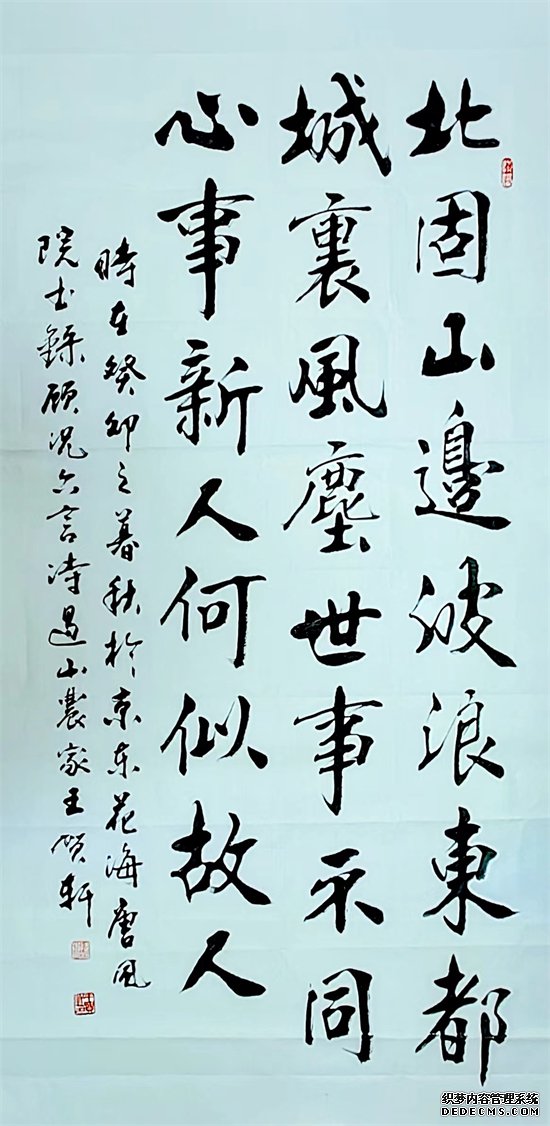 北固山邊波浪東都
城裏風塵世事不同
心事新人何似故人
時在癸卯之暮秋於京东花海唐风
院书錄顾况六言诗過山農家王轩
织梦内容管理系统
DEDECMS.COM